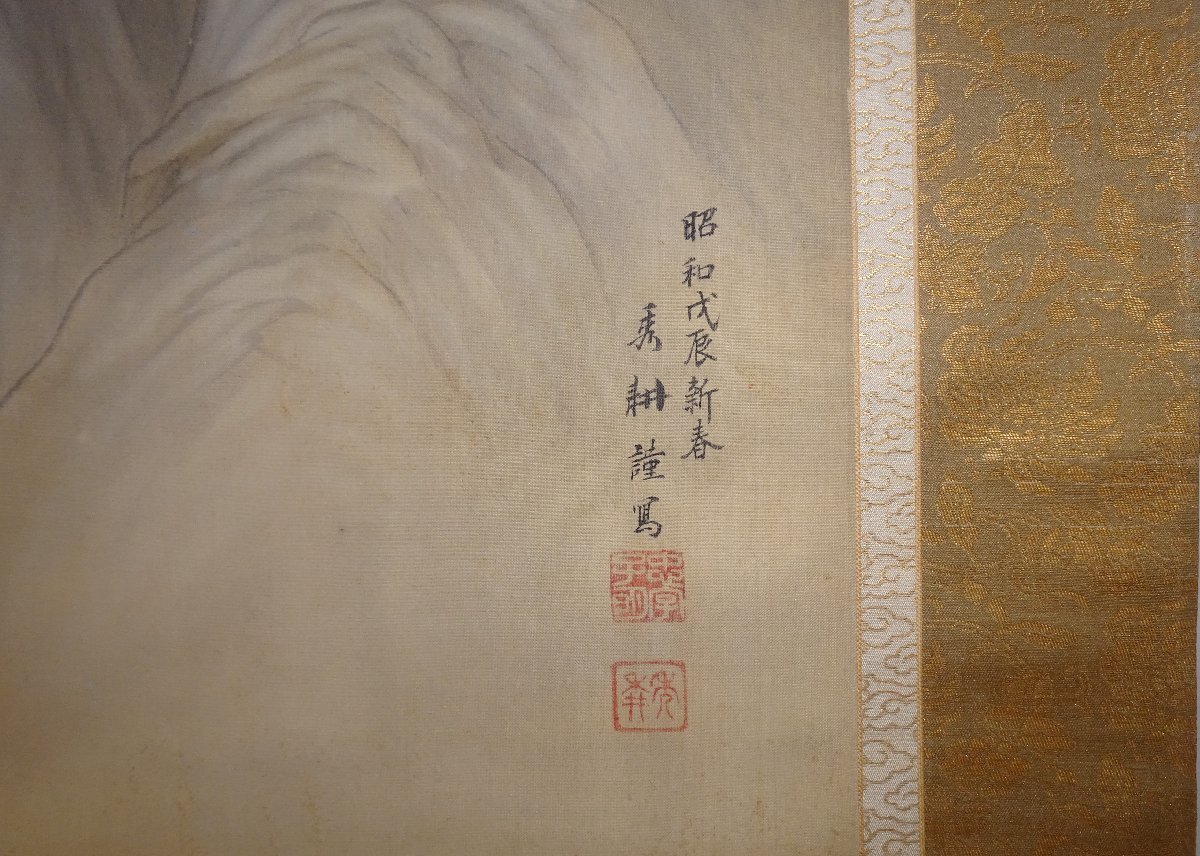 昭和戊辰新春
秀耕謹寫
秀耕